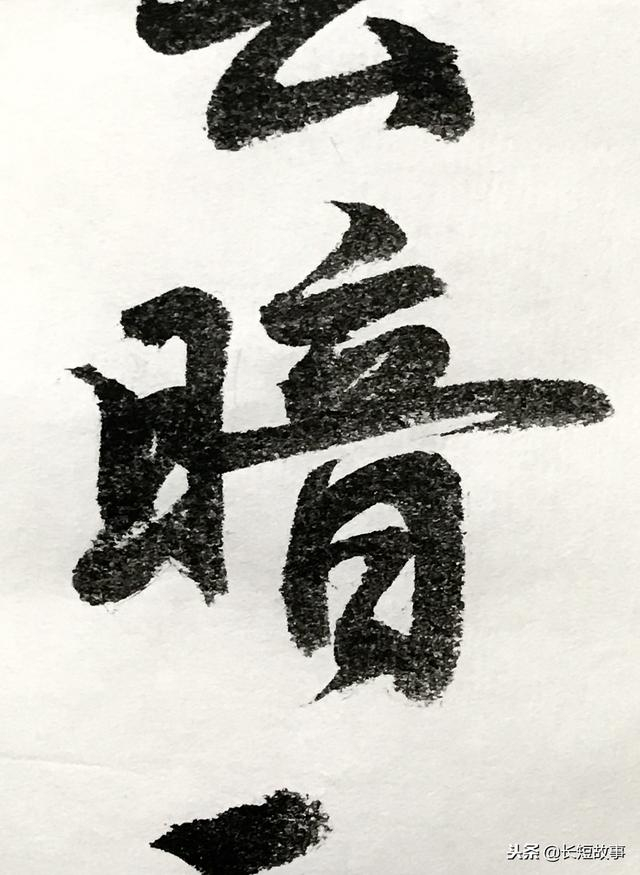 暗
头条 @长短故事